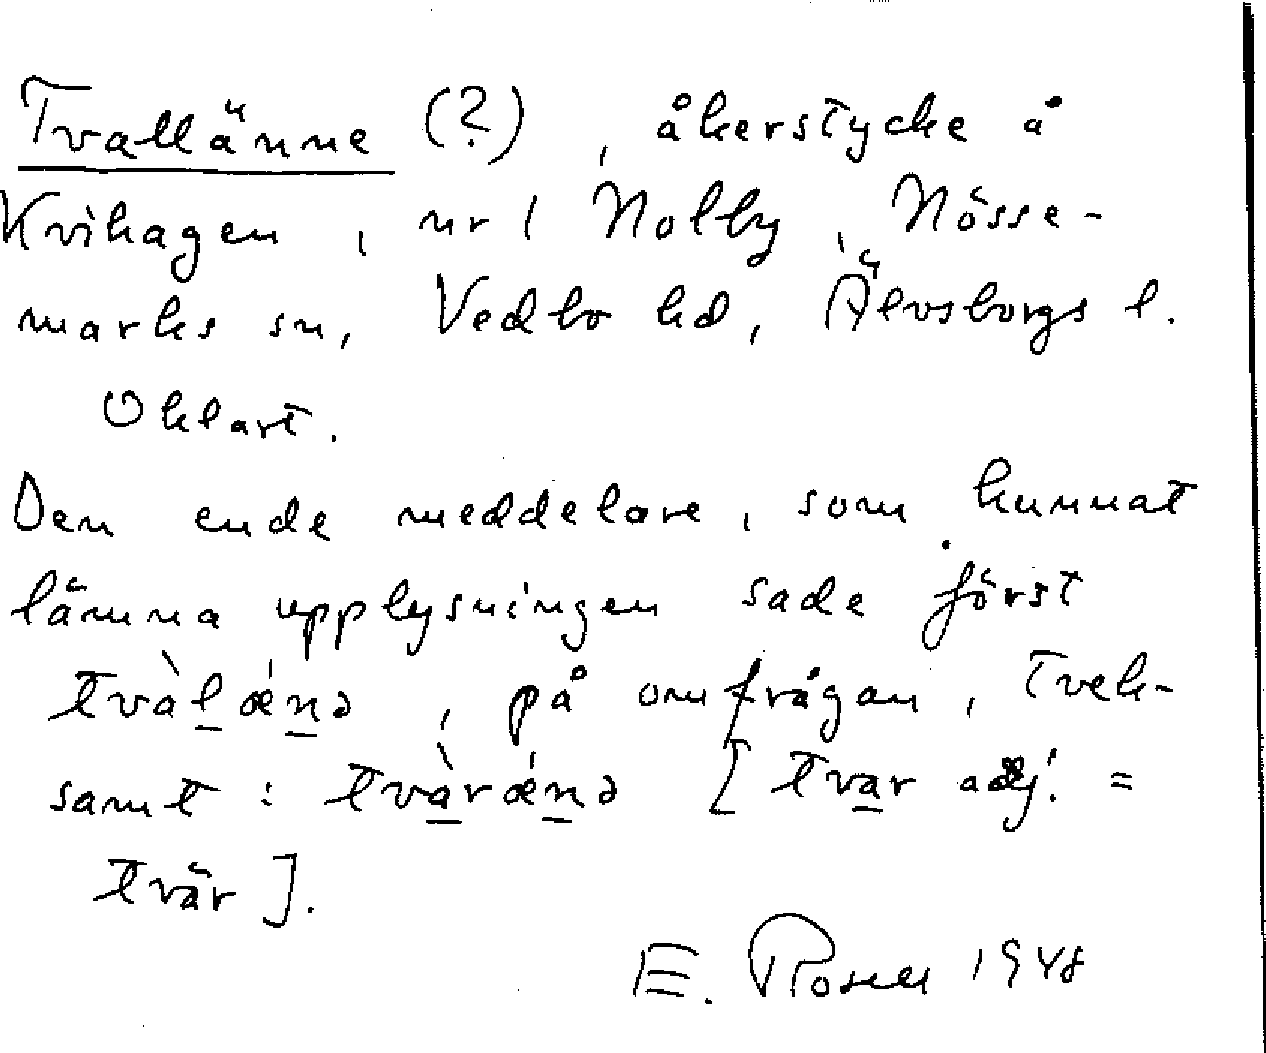 Tvallänne (?), åkerstycke å
Kvihagen, nr 1 Nolby, Nösse-
marks sn, Vedbo hd, Älvsborgs l.
Oklart.
Den ende meddelare, som kunnat
lämna upplysningen sade först
tvàlǽnə, på omfrågan, tvek-
samt: tvàrǽnə [tvar adj. =
tvär].
E. Rosell 1948